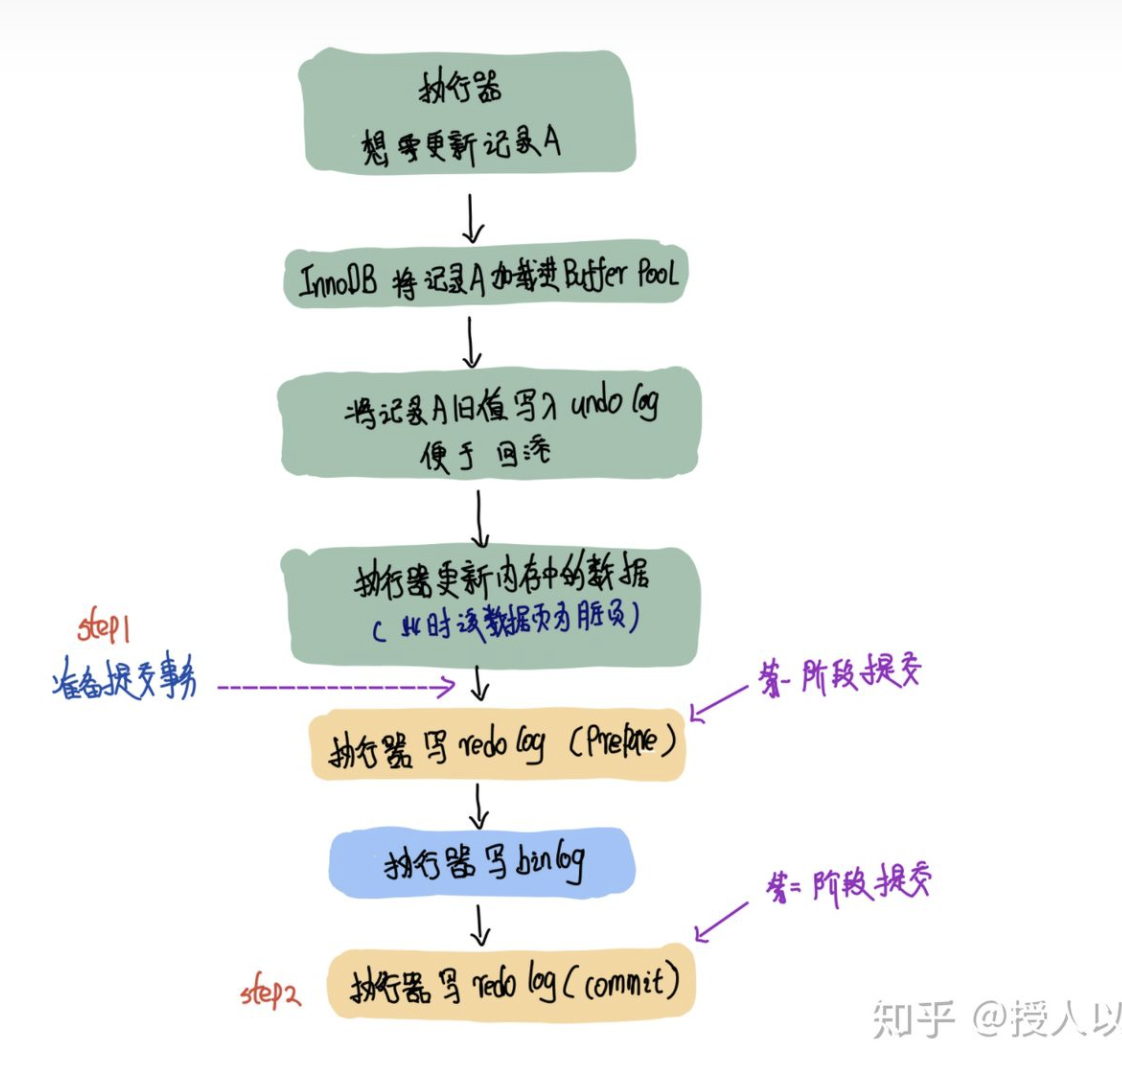 执行器
想要更新记录A
InnoDB 将记录A加载进Buffer Pool
将记录A旧值写入 undo log
便于 回滚
执行器更新内存中的数据
(此时该数据页为脏页)
step1
准备提交事务
第一阶段提交
执行器写redo log (Prepare)
执行器写binlog
第二阶段提交
step2
执行器写redo log(commit)
知乎 @授人以